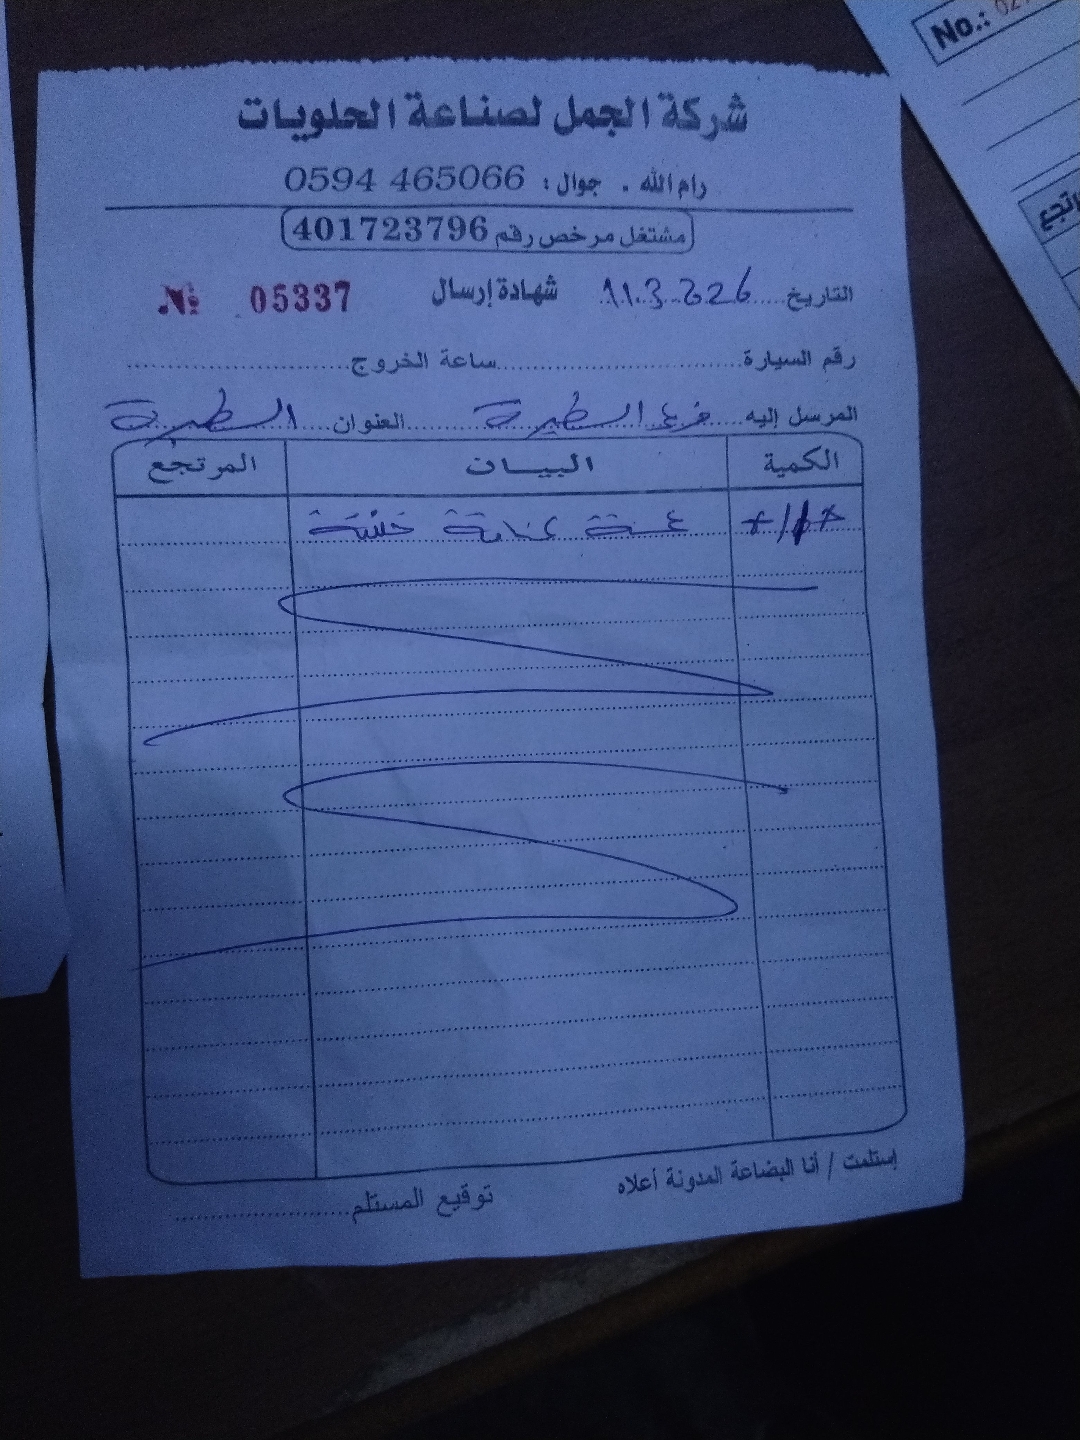 No.:
شركة الجمل لصناعة الحلويات
رام الله . جوال : 0594 465066
مشتغل مرخص رقم 401723796
التاريخ 11.3.2026 شهادة إرسال № 05337
رقم السيارة ساعة الخروج
المرسل إليه فرع الطيرة العنوان الطيرة
الكمية البيان المرتجع
خشنة
إستلمت / أنا البضاعة المدونة أعلاه
توقيع المستلم